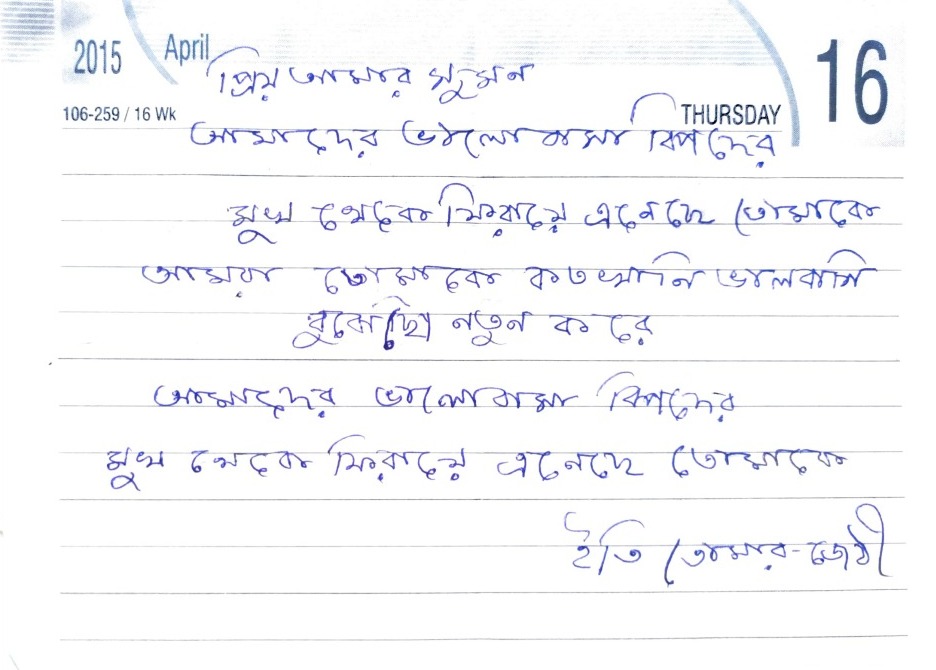 2015 April 16
106-259 / 16 Wk THURSDAY
প্রিয় আমার সুমন
আমাদের ভালোবাসা বিপদের
মুখ থেকে ফিরায়ে এনেছে তোমাকে
আমরা তোমাকে কতখানি ভালবাসি
বুঝেছি নতুন করে
আমাদের ভালোবাসা বিপদের
মুখ থেকে ফিরায়ে এনেছে তোমাকে
ইতি তোমার-জেঠী